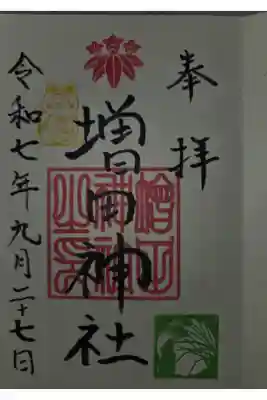 奉拝
増田神社
神社
之印
令和七年九月二十七日